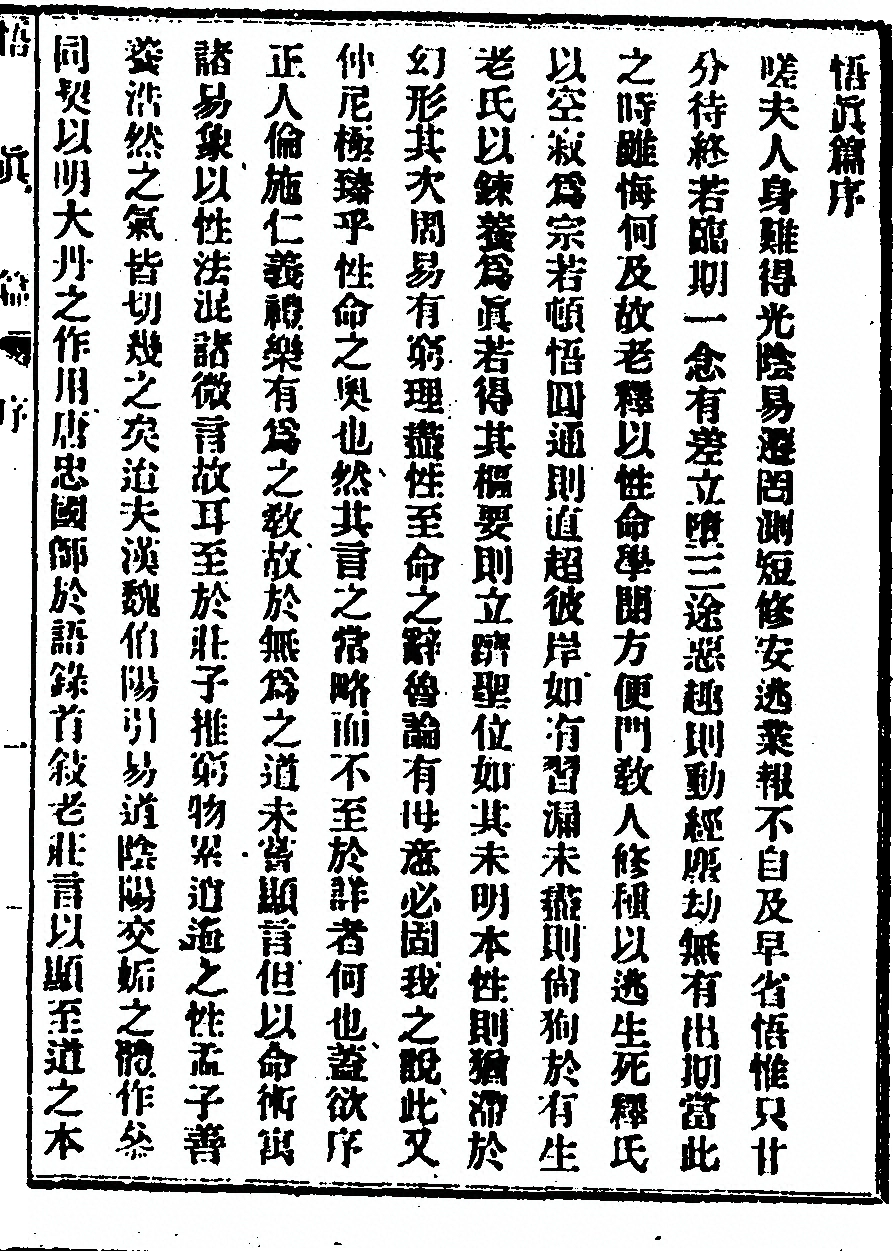 悟眞篇序
嗟夫人身難得光陰易遷罔測短修安逃業報不自及早省悟惟只甘
分待終若臨期一念有差立墮三途惡趣則動經塵劫無有出期當此
之時雖悔何及故老釋以性命學開方便門敎人修種以逃生死釋氏
以空寂爲宗若頓悟圓通則直超彼岸如有習漏未盡則尙狥於有生
老氏以鍊養爲眞若得其樞要則立躋聖位如其未明本性則猶滯於
幻形其次周易有窮理盡性至命之辭魯論有毋意必固我之說此又
仲尼極臻乎性命之奧也然其言之常略而不至於詳者何也蓋欲序
正人倫施仁義禮樂有爲之敎故於無爲之道未嘗顯言但以命術寓
諸易象以性法混諸微言故耳至於莊子推窮物累逍遙之性孟子善
養浩然之氣皆切幾之矣迨夫漢魏伯陽引易道陰陽交姤之體作參
同契以明大丹之作用唐忠國師於語錄首敍老莊言以顯至道之本
悟眞篇 序 一